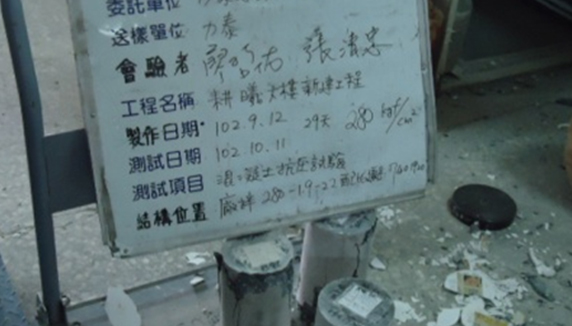 委託單位
送樣單位 力泰
會驗者 張清忠
工程名稱 耕曦大樓新建工程
製作日期 102.9.12 29天 280 kgf/cm²
測試日期 102.10.11
測試項目 混凝土抗壓試驗
結構位置 廠拌 280-19-22